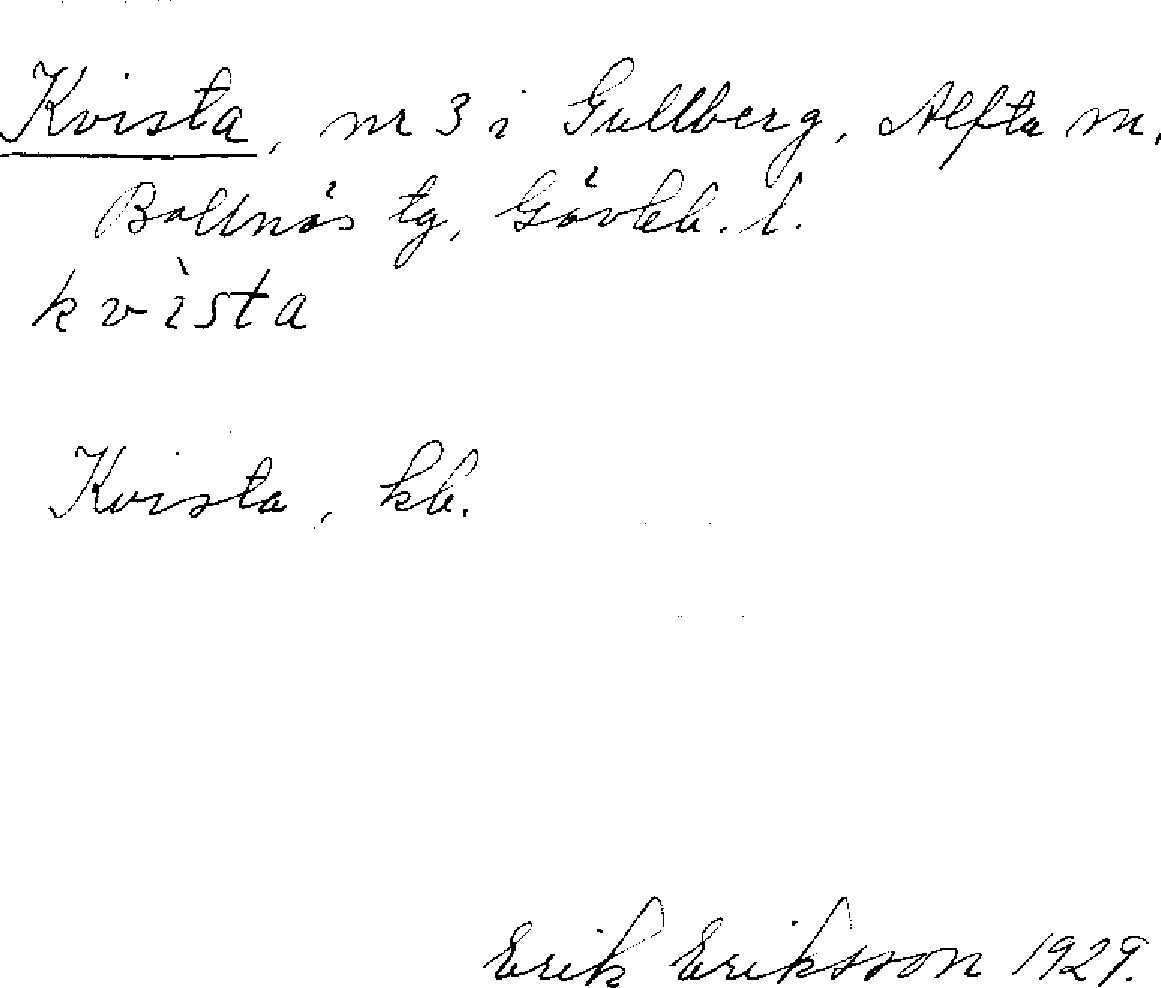 Kvista, nr 3 i Gullberg, Alfta sn.
Bollnäs tg, Gävleb. l.
kvìsta
Kvista, kb.
Erik Eriksson 1929.